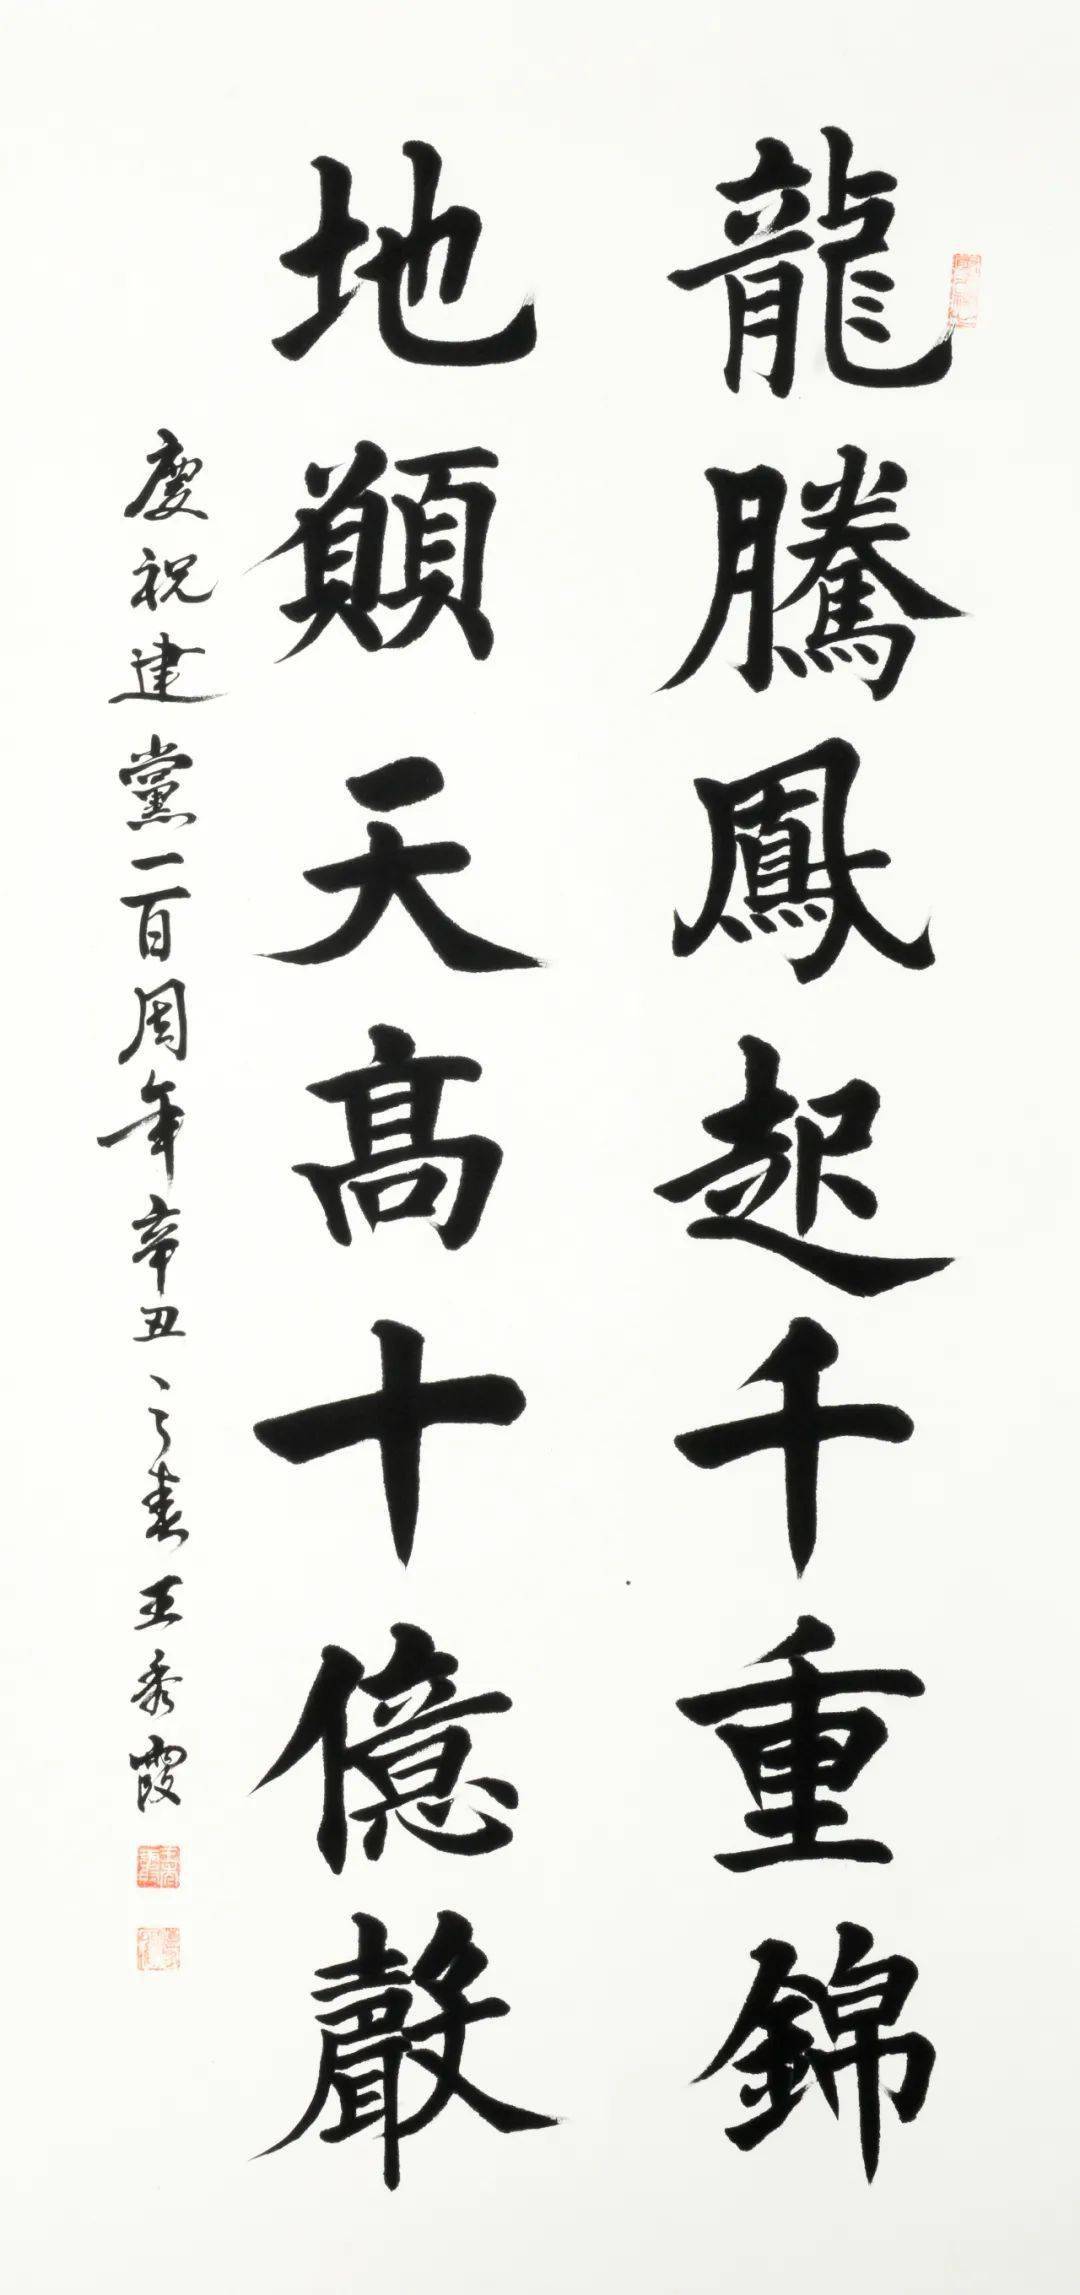 龍騰鳳起千重錦
地顛天高十億聲
慶祝建黨一百周年辛丑之春王秀霞